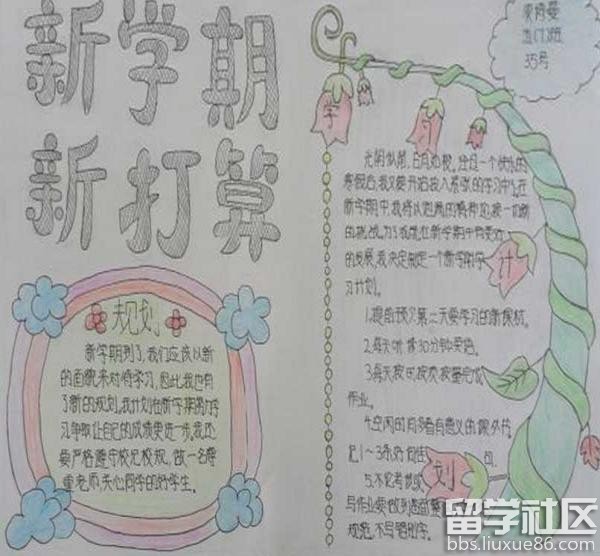 新学期
新打算
规划
新学期到了,我们应该以新
的面貌来对待学习,因此我也有
了新的规划,我计划在新学期的学
习中争取让自己的成绩更进一步,我还
要严格遵守校纪校规,做一名尊
重老师,关心同学的好学生。
五(7)班
35号
学
习
计
划
光阴似箭,日月如梭。
寒假后,我又要开始投入紧张的学习中。在
新学期中,我将以饱满的精神迎接一切新
的挑战,为了我能在新学期中有更好
的发展,我决定制定一个新学期学
习计划。
1.提前预习第二天要学习的新课程。
2.每天听读30分钟英语。
3.每天按时按质按量完成
作业。
4.空闲时间多看有意义的课外书,
记1~3条好词佳句。
5.不论考试或
写作业要做到
规范,不写错别字。
留学社区
bbs.liuxue86.com